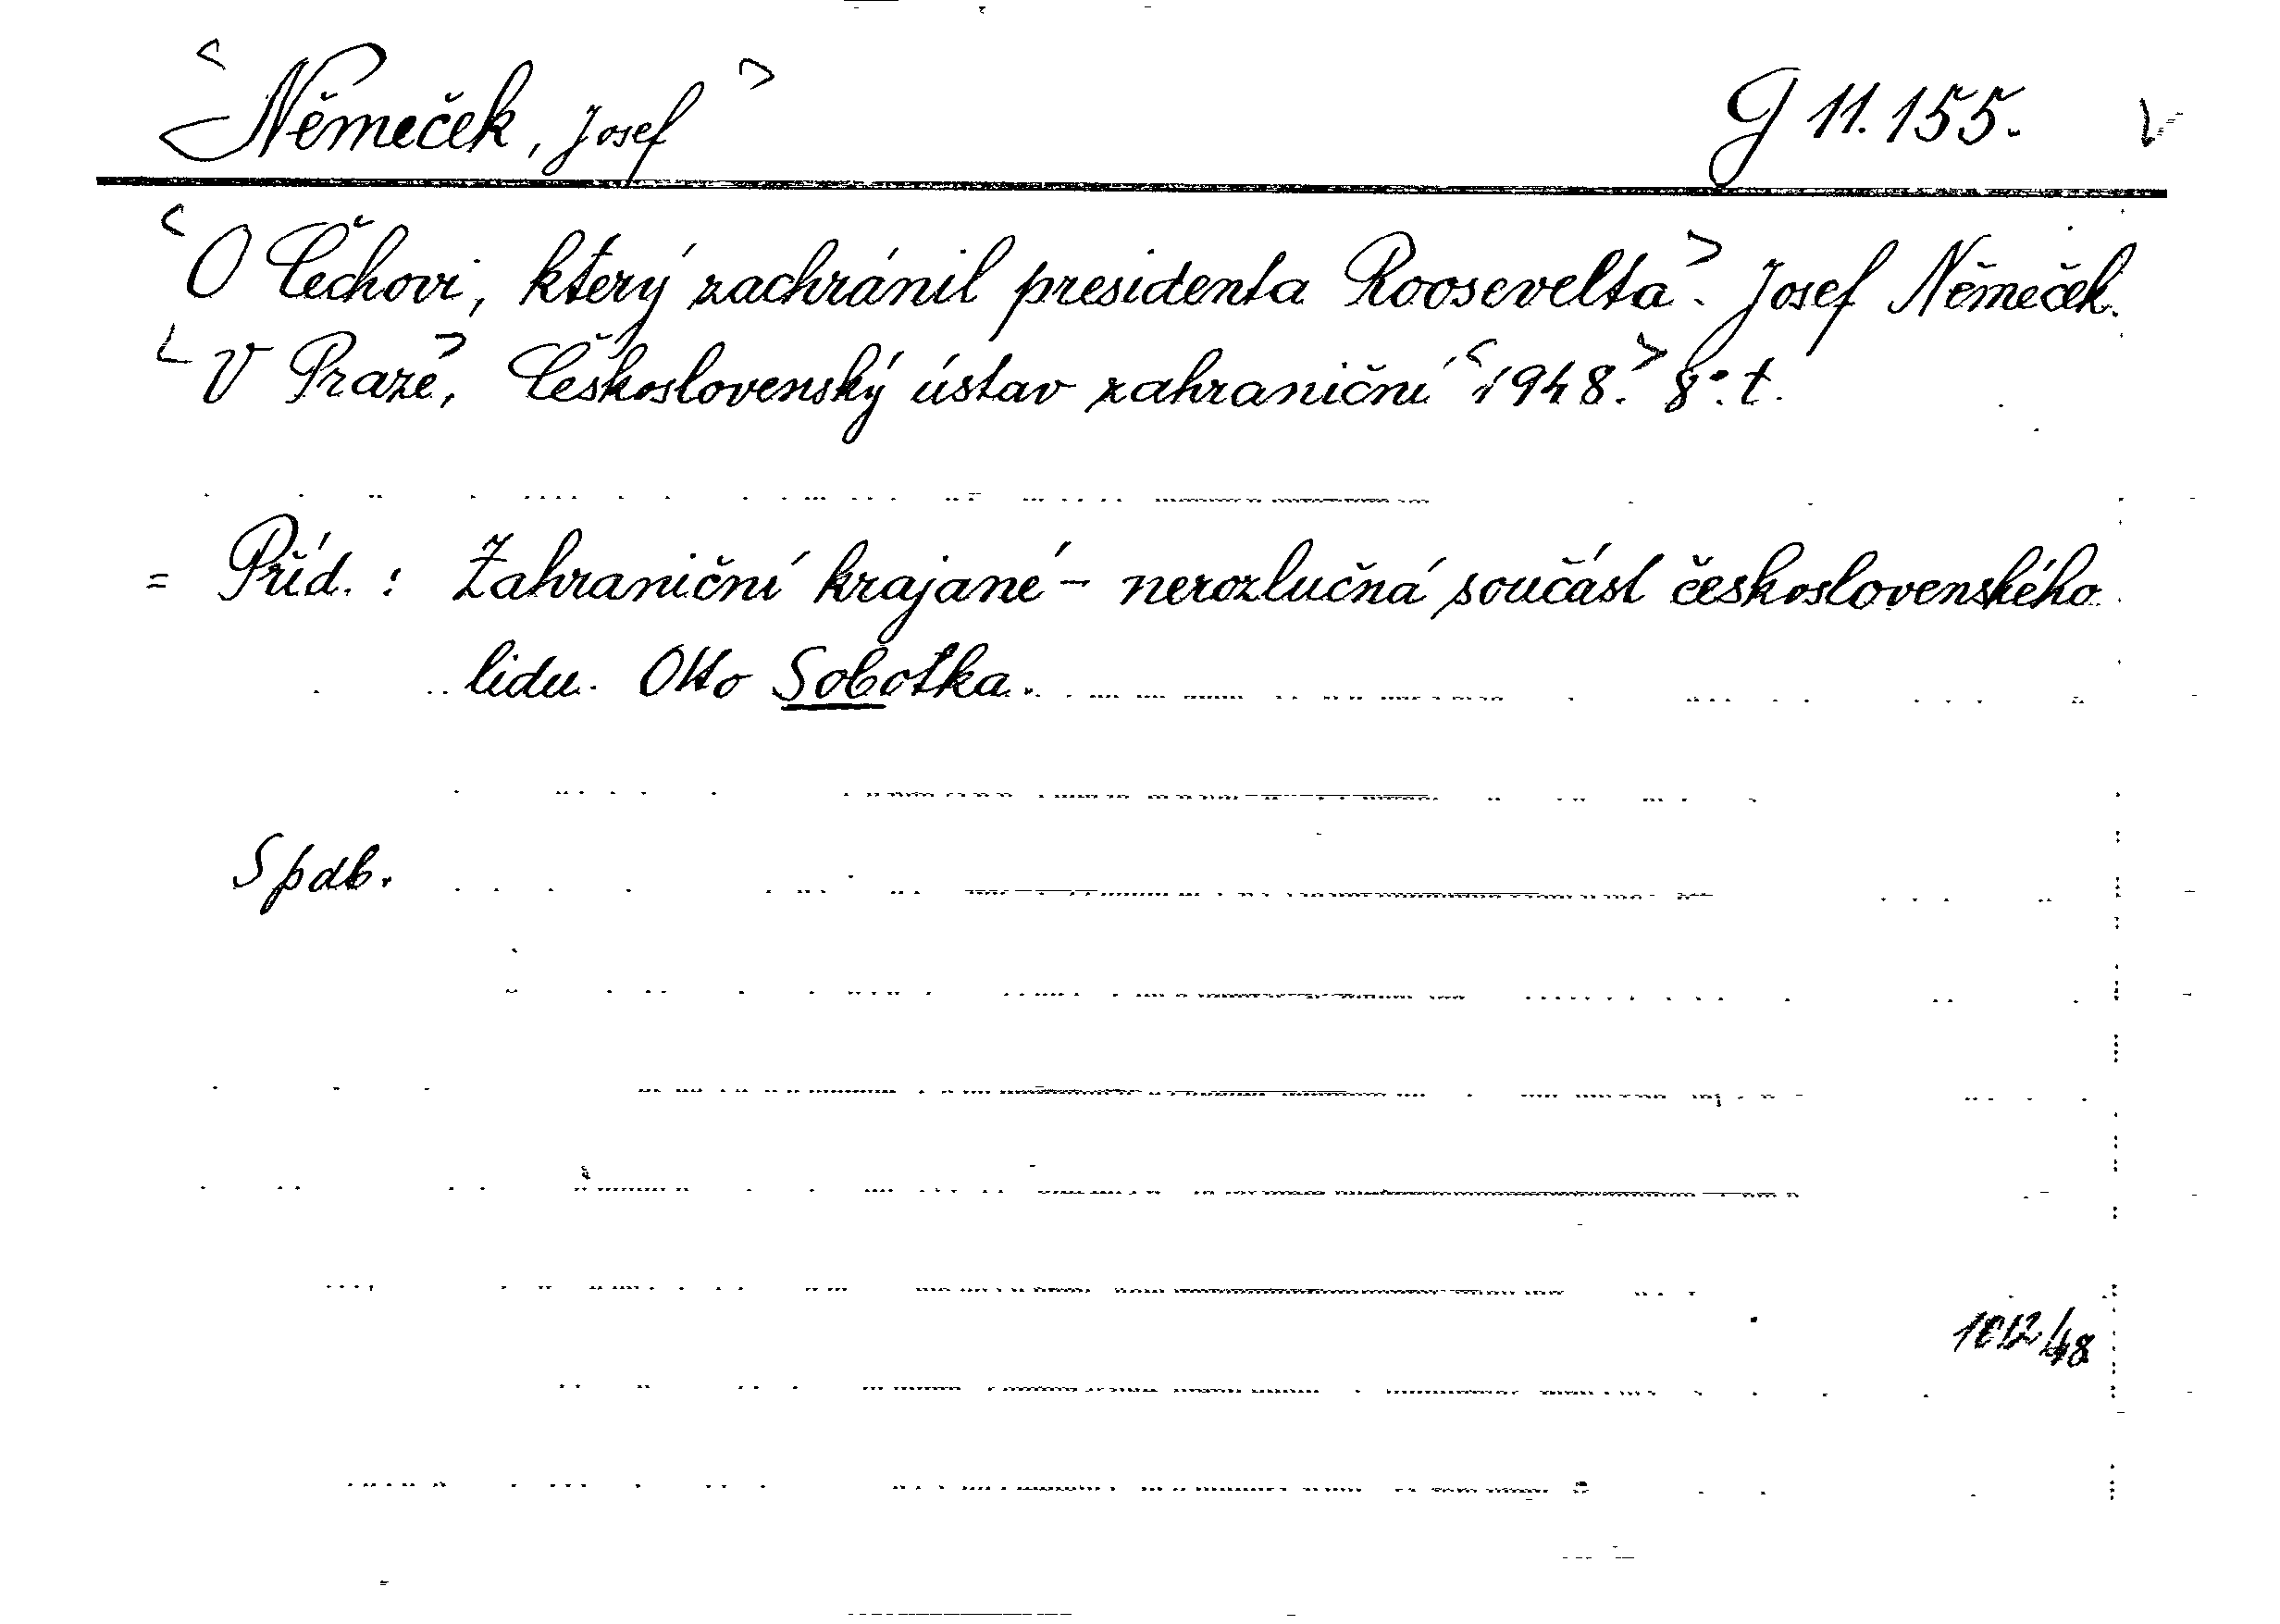 Němeček, Josef G 11.155.
O Čechovi, který zachránil presidenta Roosevelta. Josef Němeček.
V Praze, Československý ústav zahraniční 1948. 8°. t.
= Příd.: Zahraniční krajané - nerozlučná součást československého
lidu. Otto Sobotka.
Spdb.